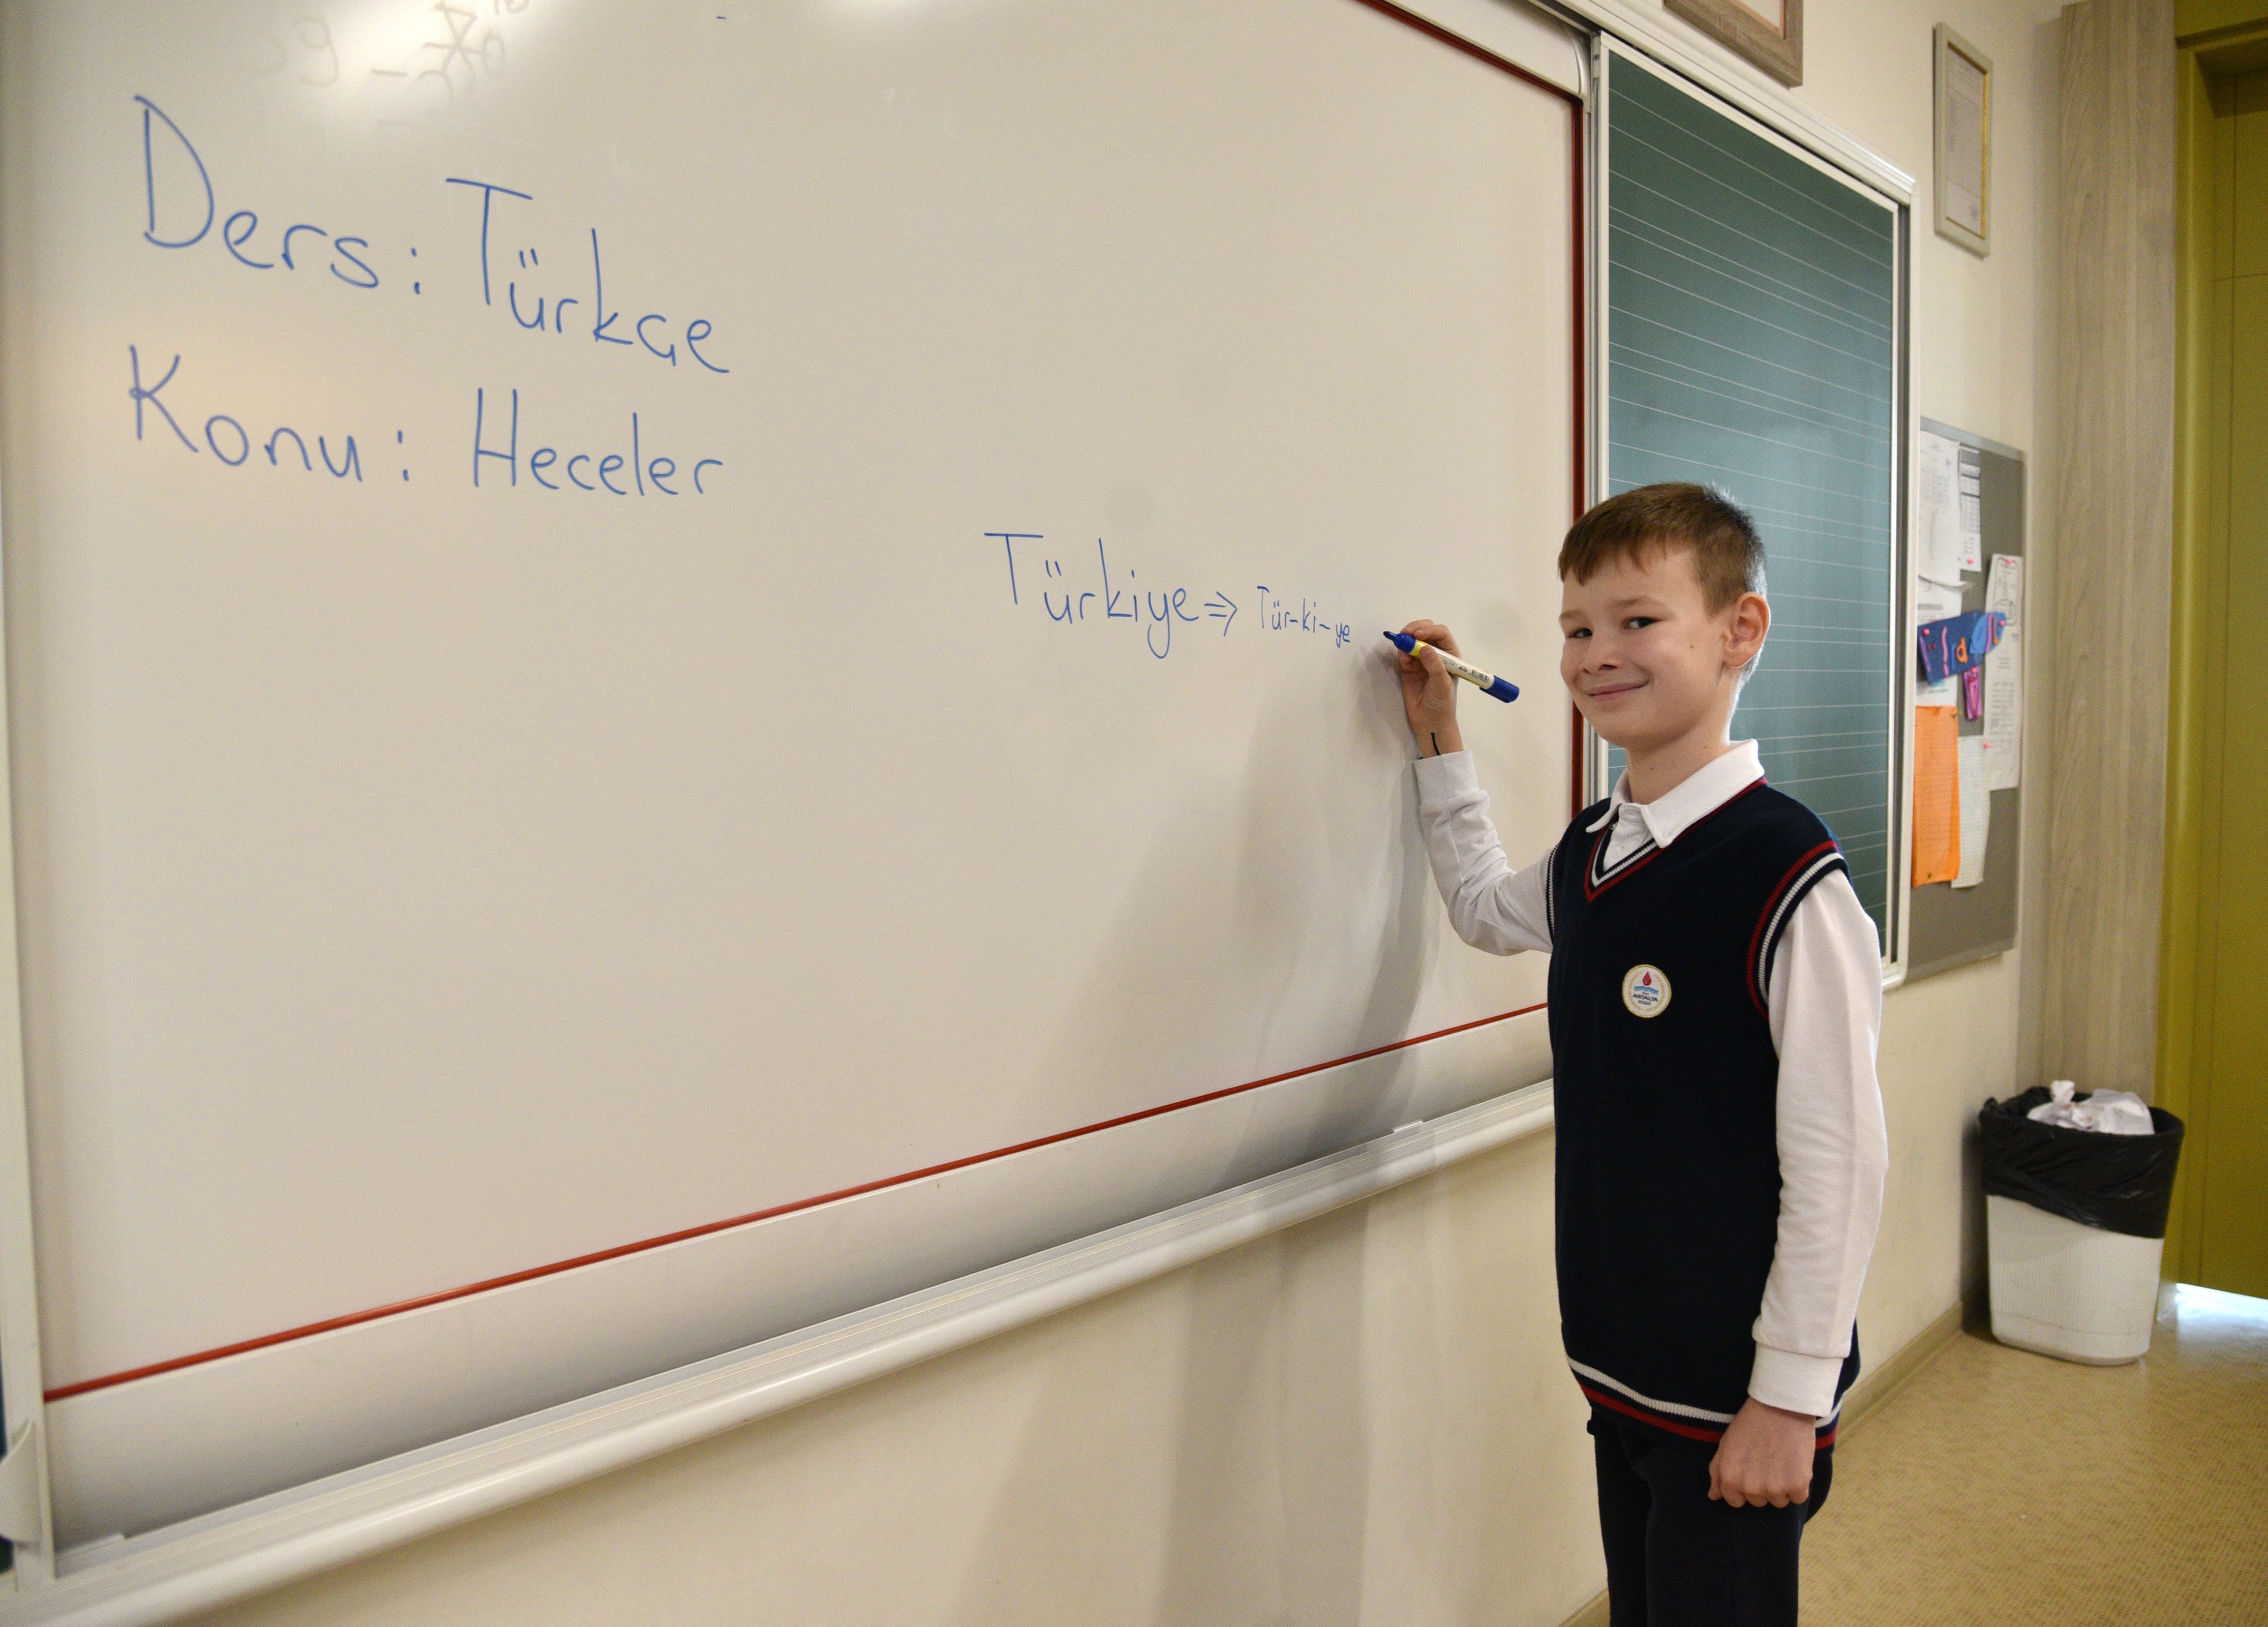 Ders: Türkçe
Konu: Heceler
Türkiye ⇒ Tür-ki-ye
ANTALYA